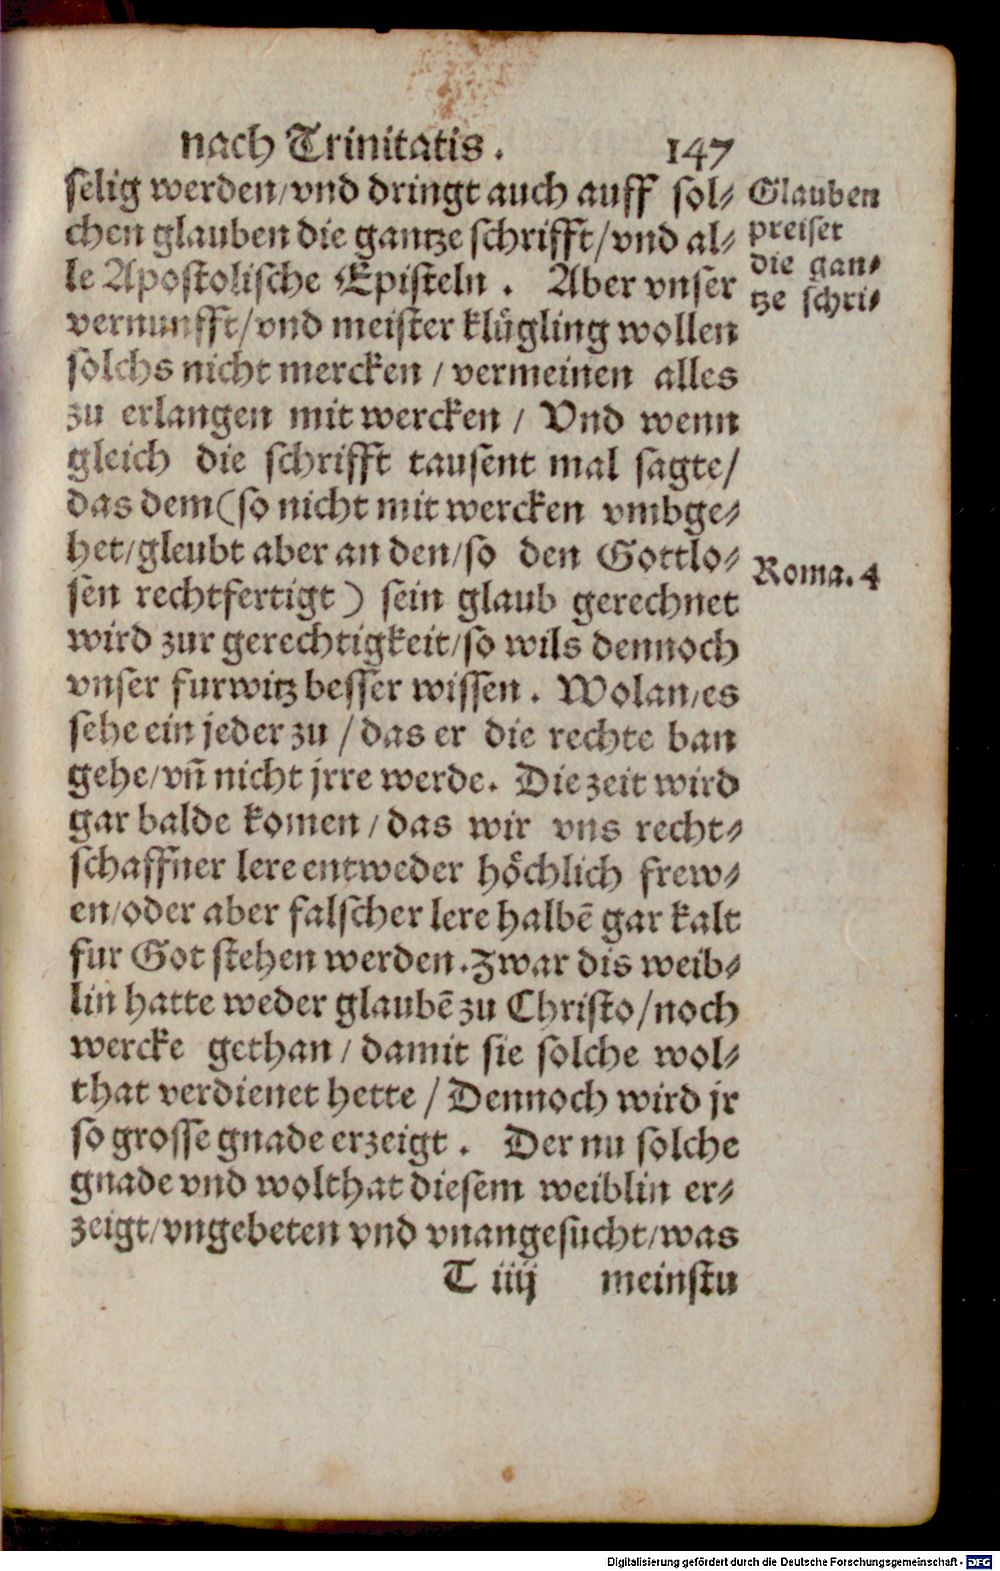 nach Trinitatis. 147
selig werden/vnd dringt auch auff sol⸗
chen glauben die gantze schrifft/vnd al⸗
le Apostolische Episteln. Aber vnser
vernunfft/vnd meister klügling wollen
solchs nicht mercken/vermeinen alles
zu erlangen mit wercken/Vnd wenn
gleich die schrifft tausent mal sagte/
das dem(so nicht mit wercken vmbge⸗
het/gleubt aber an den/so den Gottlo⸗
sen rechtfertigt) sein glaub gerechnet
wird zur gerechtigkeit/so wils dennoch
vnser furwitz besser wissen. Wolan/es
sehe ein jeder zu/das er die rechte ban
gehe/vn̄ nicht jrre werde. Die zeit wird
gar balde komen/das wir vns recht⸗
schaffner lere entweder höchlich frew⸗
en/oder aber falscher lere halbē gar kalt
fur Got stehen werden. Zwar dis weib⸗
lin hatte weder glaubē zu Christo/noch
wercke gethan/damit sie solche wol⸗
that verdienet hette/Dennoch wird jr
so grosse gnade erzeigt. Der nu solche
gnade vnd wolthat diesem weiblin er⸗
zeigt/vngebeten vnd vnangesucht/was
T iiij meinstu
Glauben
preiset
die gan⸗
tze schri⸗
Roma. 4
Digitalisierung gefördert durch die Deutsche Forschungsgemeinschaft - DFG